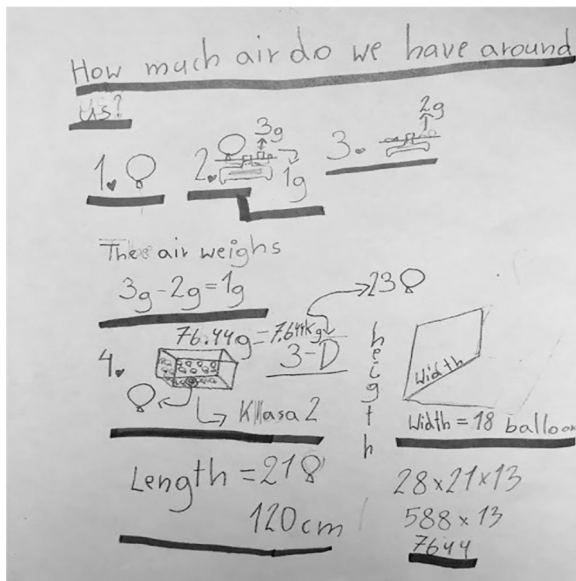 How much air do we have around
us?
1. 2. 3g 1g 3. 2g
The air weighs
3g-2g=1g
23
76.44g=7.644kg
4. 3-D
Klasa 2
height
Width
Width = 18 balloon
Length = 21
120cm
28x21x13
588x13
7644